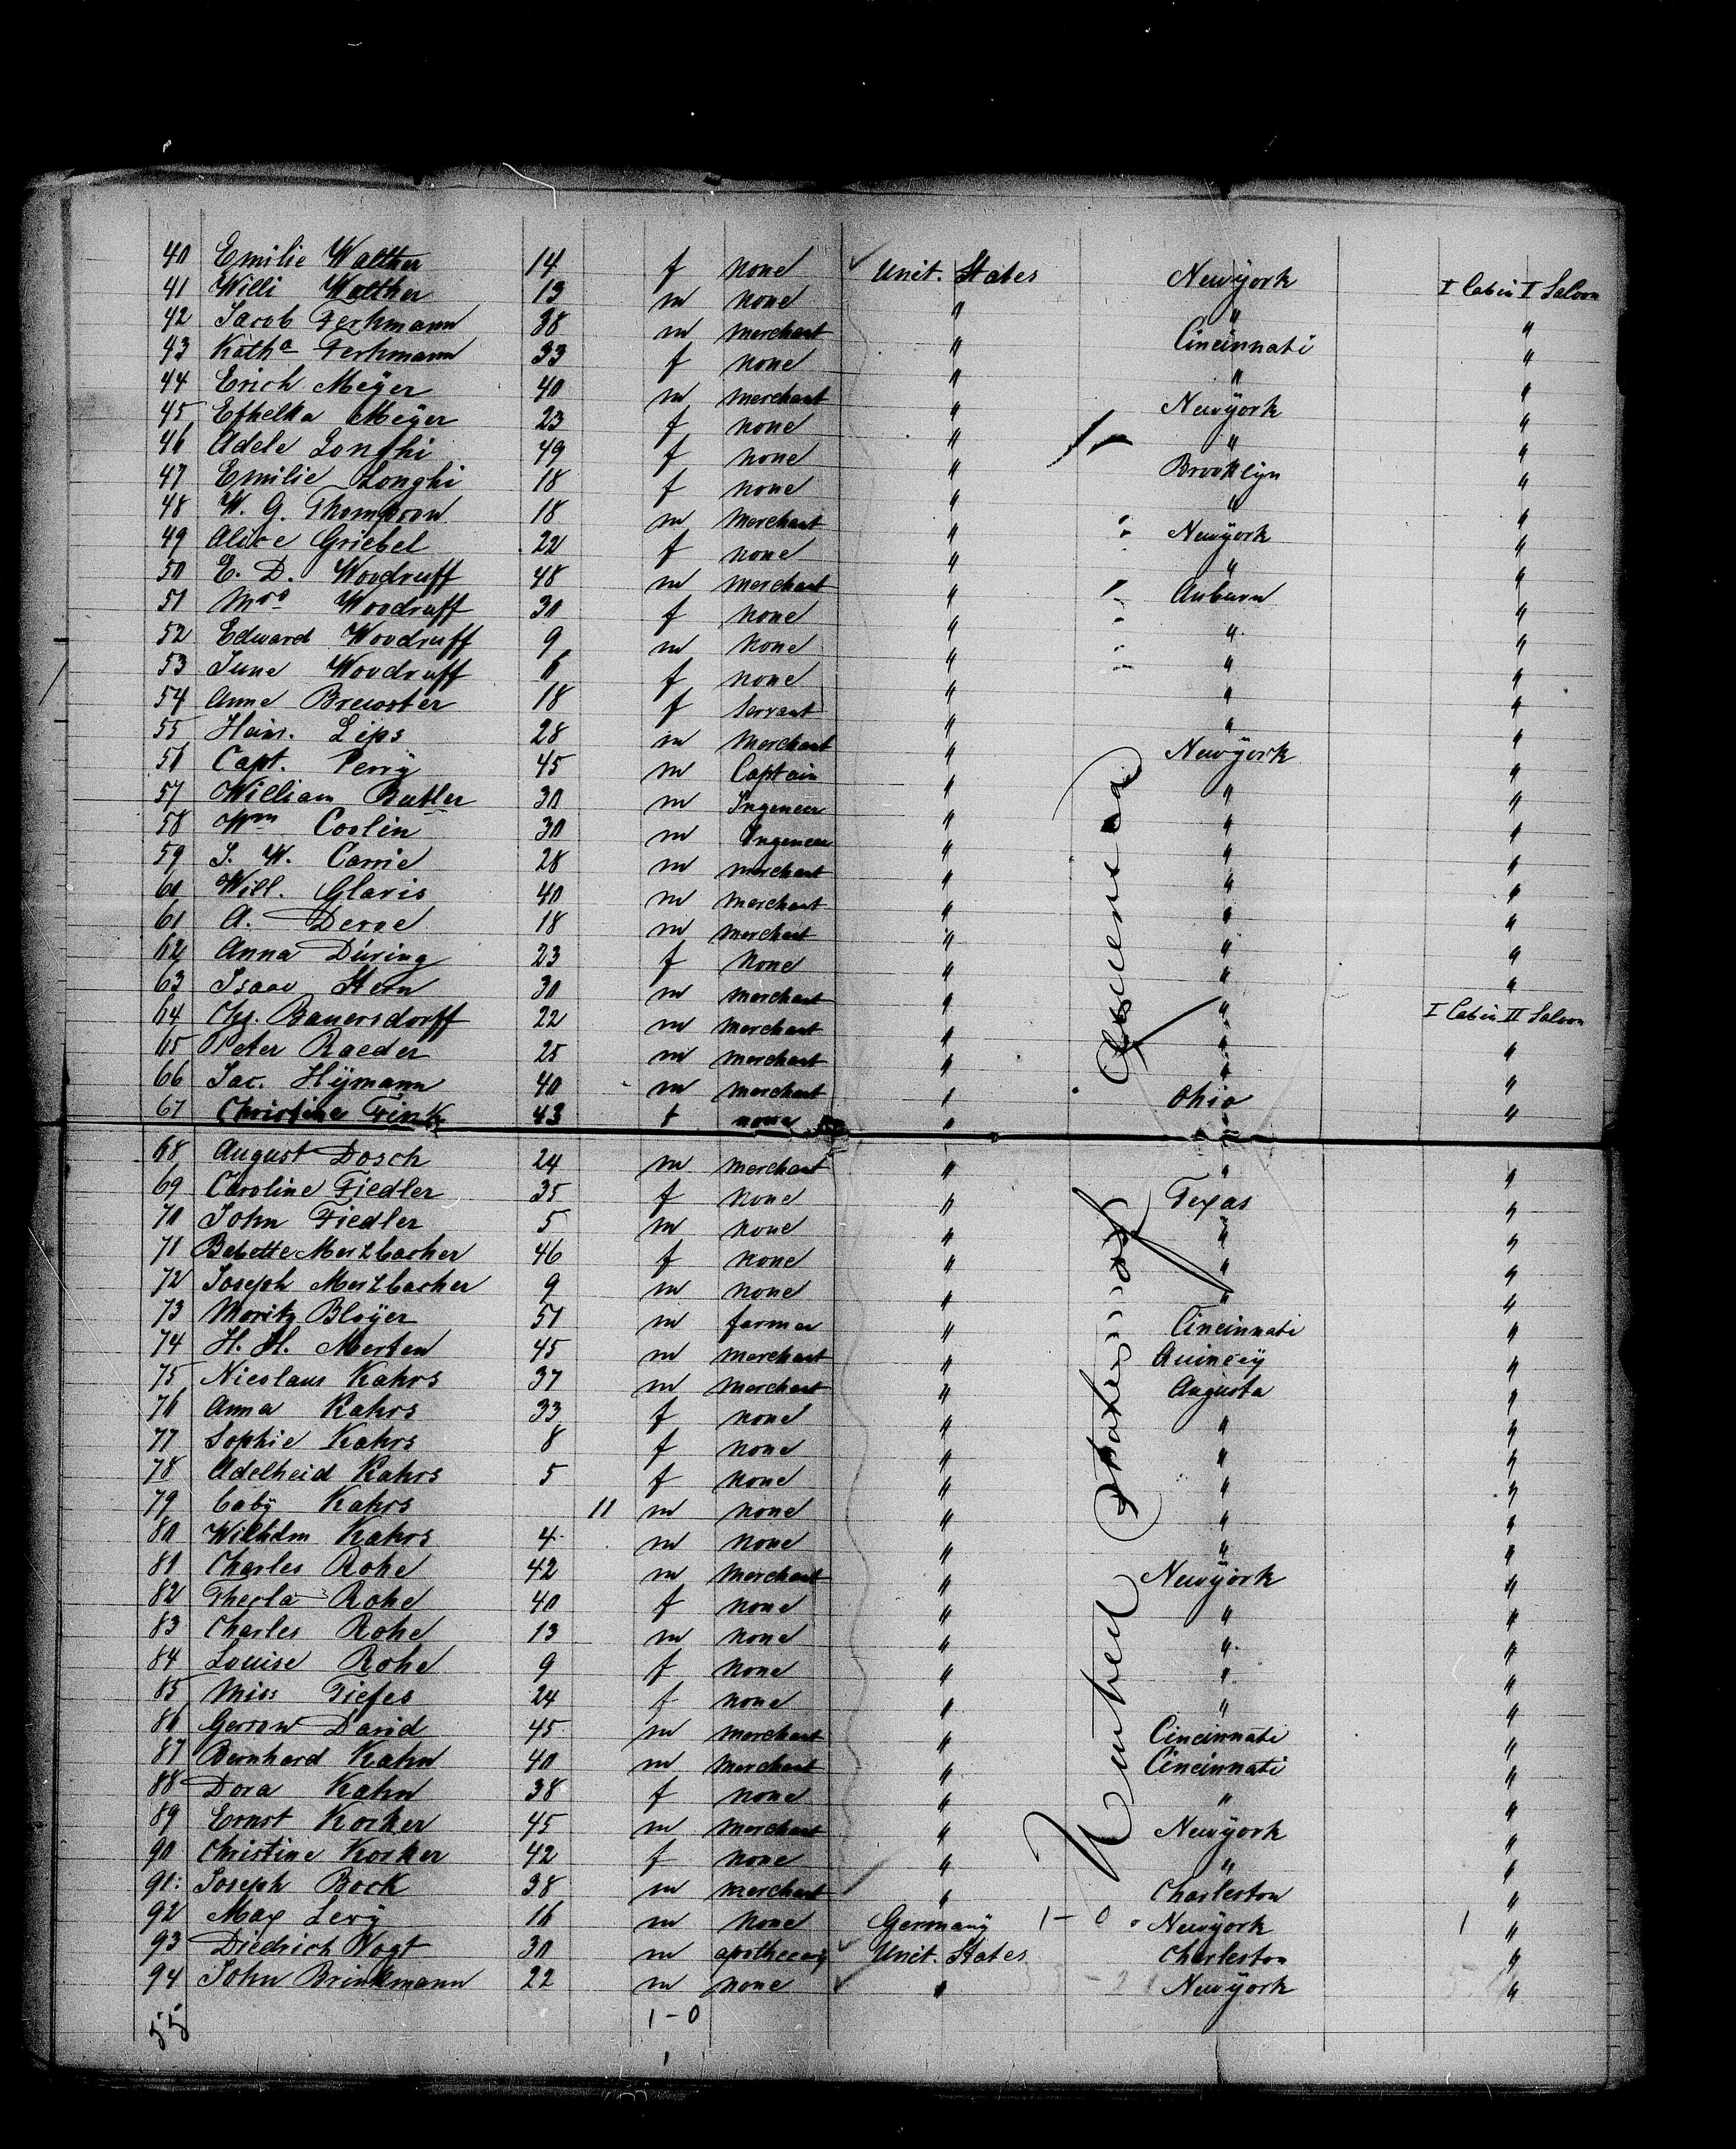 40 Emilie Walther 14 f none Unit. States Newyork I Cabin I Saloon
41 Willi Walther 13 m none " " "
42 Jacob Ferkmann 38 m merchant " Cincinnati "
43 Kath^a Ferkmann 33 f none " " "
44 Erich Meÿer 40 m merchant " Newÿork "
45 Ethelka Meÿer 23 f none " " "
46 Adele Longhi 49 f none " Brooklyn "
47 Emilie Longhi 18 f none " " "
48 W. G. Thompson 18 m merchant " Newÿork "
49 Alice Griebel 22 f none " " "
50 E. D. Woodruff 48 m merchant " Auburn "
51 Mrs Woodruff 30 f none " " "
52 Edward Woodruff 9 m none " " "
53 June Woodruff 6 f none " " "
54 Anne Brewster 18 f Servant " " "
55 Hein. Lips 28 m Merchant " Newÿork "
56 Capt. Perrÿ 45 m Captain " " "
57 William Butler 30 m Ingeneer " " "
58 Wm Coslin 30 m Ingeneer " " "
59 J. W. Carrie 28 m merchant " " "
60 Will. Glaris 40 m merchant " " "
61 A. Deroe 18 m merchant " " "
62 Anna Düring 23 f none " " "
63 Isaac Stern 30 m merchant " " "
64 Chs. Bauersdorff 22 m merchant " " I Cabin II Saloon
65 Peter Raeder 25 m merchant " " "
66 Jac. Hÿmann 40 m merchant " Ohio "
67 Christine Fink 43 f none " " "
68 August Dosch 24 m merchant " " "
69 Caroline Fiedler 35 f none " Texas "
70 John Fiedler 5 m none " " "
71 Babette Merzbacher 46 f none " " "
72 Joseph Merzbacher 9 m none " " "
73 Moritz Bloÿer 51 m farmer " Cincinnati "
74 H. H. Merten 45 m merchant " Quincÿ "
75 Nicolaus Kahrs 37 m merchant " Augusta "
76 Anna Kahrs 33 f none " " "
77 Sophie Kahrs 8 f none " " "
78 Adelheid Kahrs 5 f none " " "
79 Babÿ Kahrs 11 m none " " "
80 Wilhelm Kahrs 4 m none " " "
81 Charles Rohe 42 m merchant " Newÿork "
82 Thecla Rohe 40 f none " " "
83 Charles Rohe 13 m none " " "
84 Louise Rohe 9 f none " " "
85 Miss Tiefes 24 f none " " "
86 Gerrow David 45 m merchant " Cincinnati "
87 Bernhard Kahn 40 m merchant " Cincinnati "
88 Dora Kahn 38 f none " " "
89 Ernst Korker 45 m merchant " Newÿork "
90 Christine Korker 42 f none " " "
91 Joseph Bock 38 m merchant " Charleston "
92 Max Levÿ 16 m none Germanÿ 1-0 Newÿork 1 "
93 Diedrich Vogt 30 m apothecarÿ Unit. States Charleston "
94 John Brinkmann 22 m none " Newÿork "
55 1-0
1
United States of America